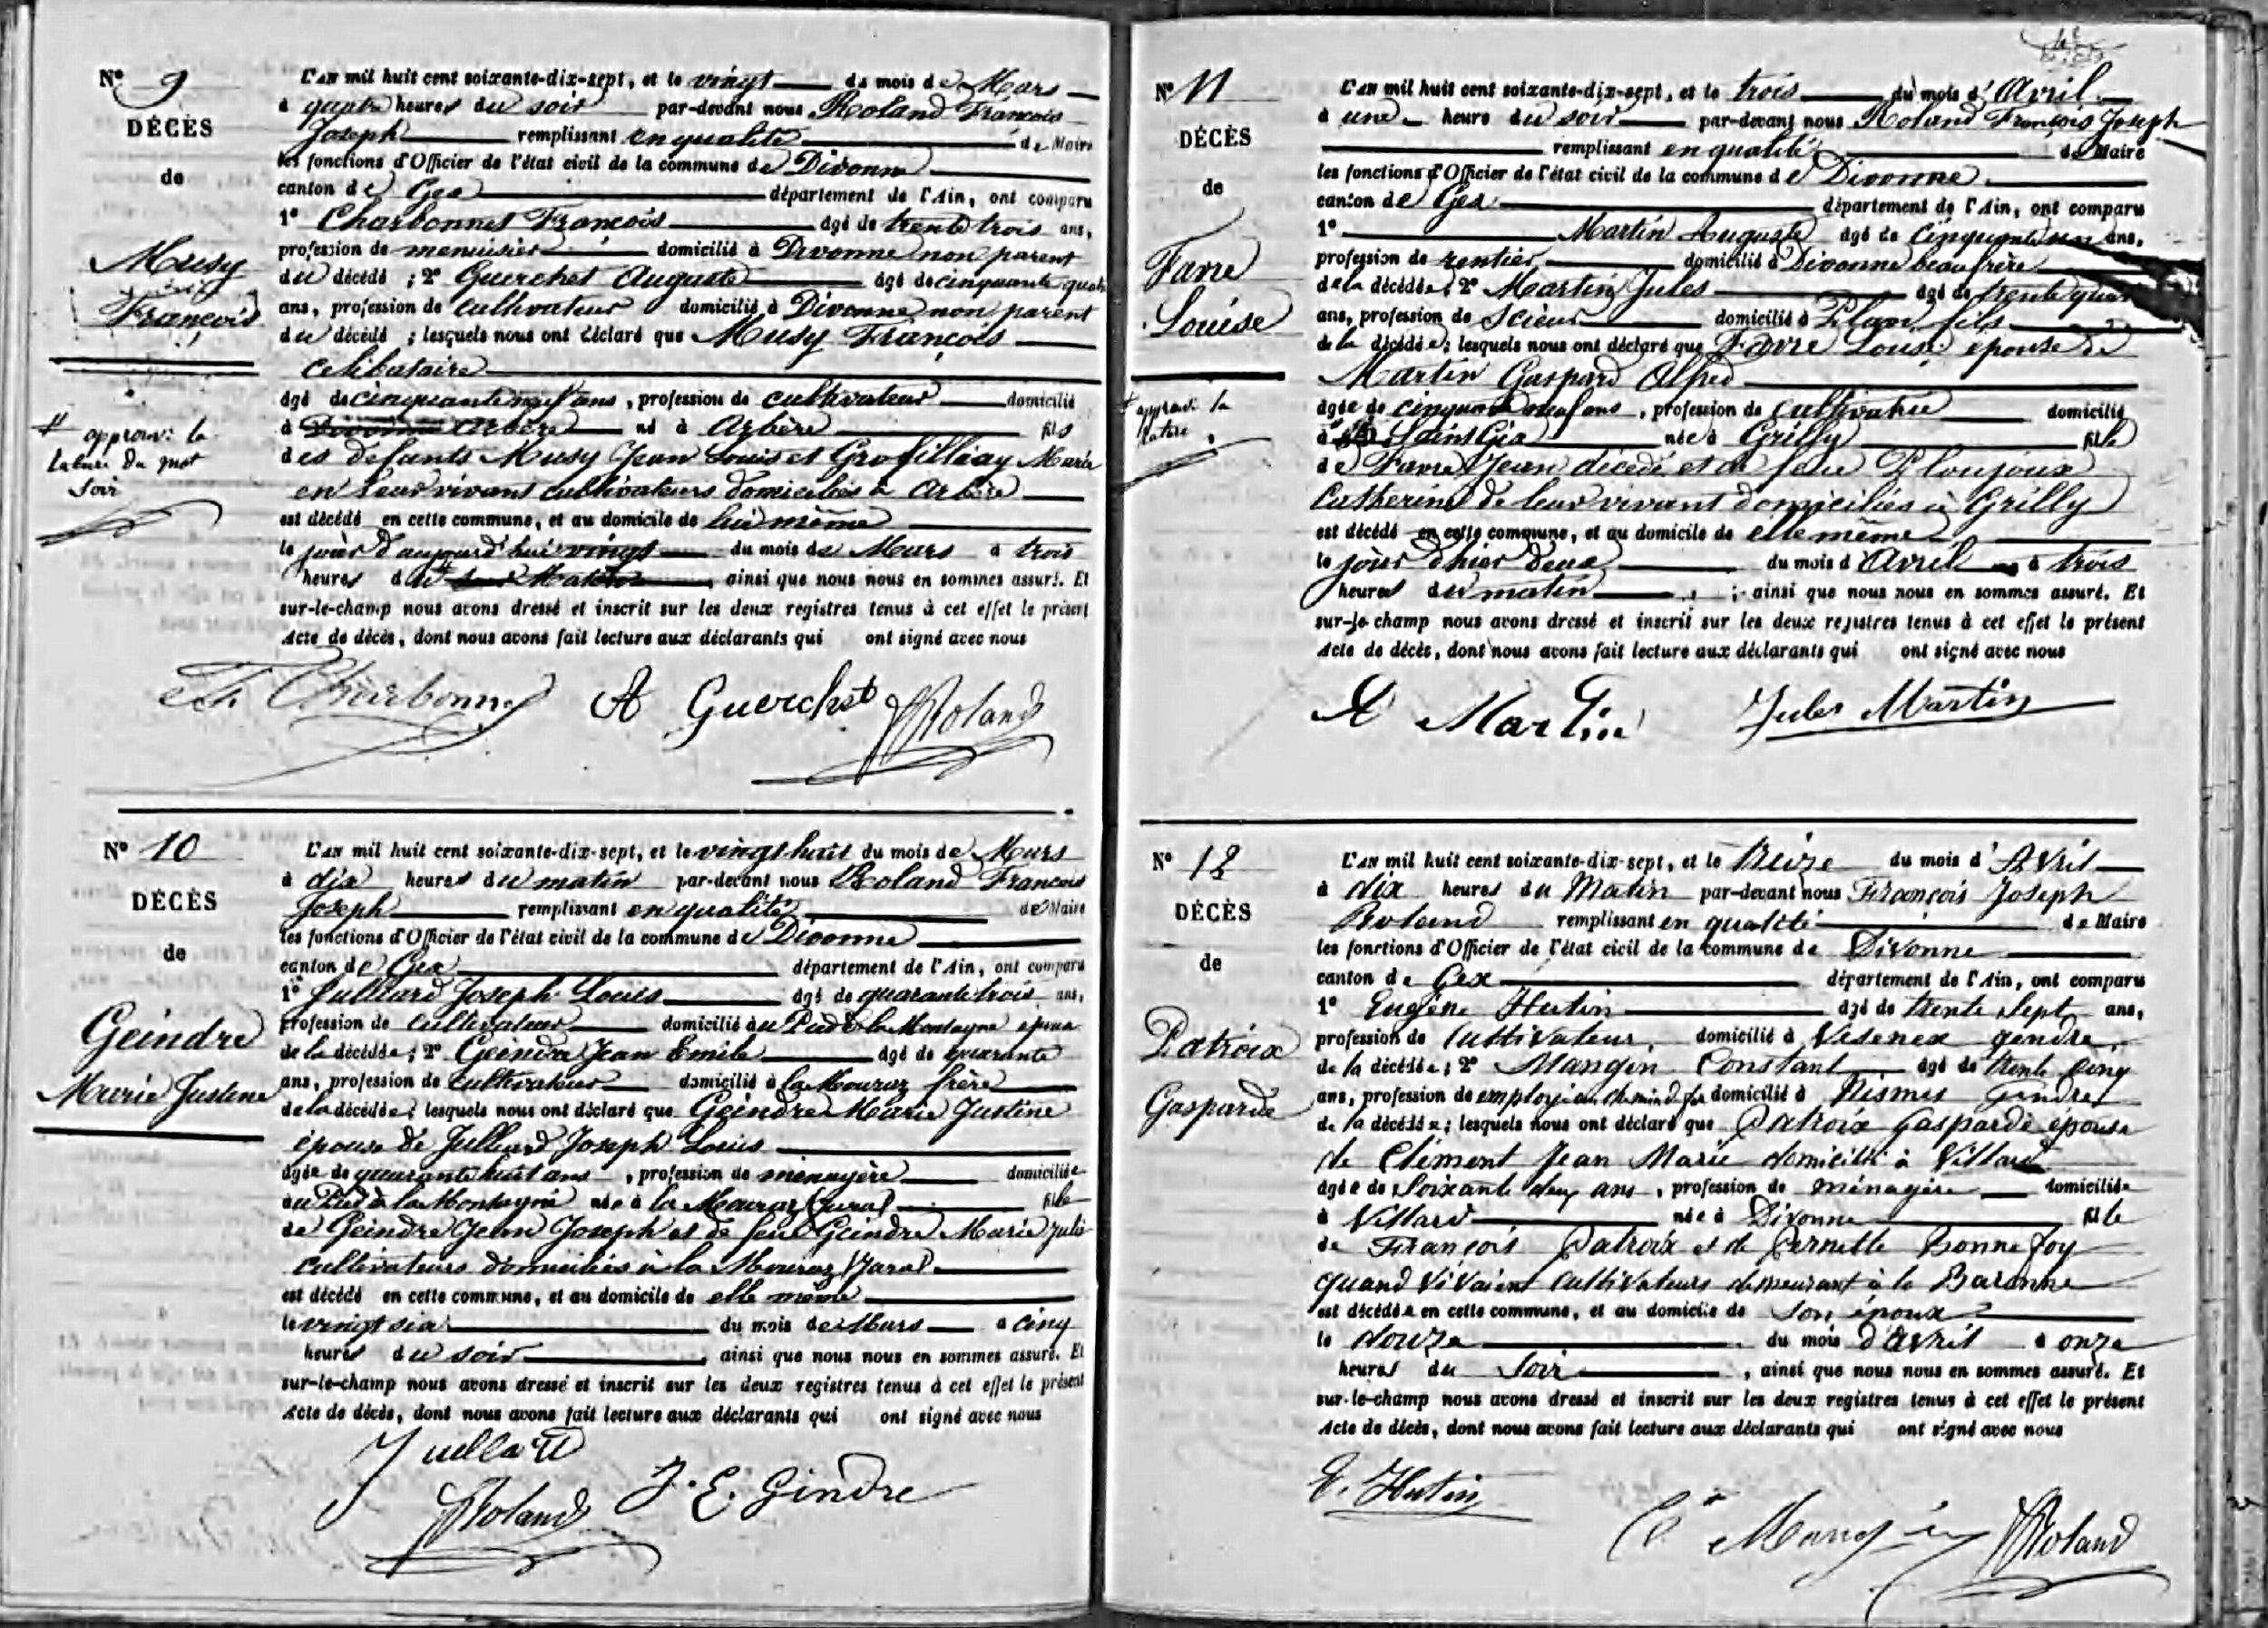 N° 9
DÉCÈS
de
Musy
François
approuvé la
rature du mot
soir
L'an mil huit cent soixante-dix-sept, et le vingt du mois de Mars
à quatre heures du soir par-devant nous Roland François
Joseph remplissant en qualité de Maire
les fonctions d'Officier de l'état civil de la commune de Divonne
canton de Gex département de l'Ain, ont comparu
1° Charbonnet François âgé de trente trois ans,
profession de menuisier domicilié à Divonne non parent
du décédé ; 2° Guerchet Auguste âgé de cinquante quatre
ans, profession de cultivateur domicilié à Divonne non parent
du décédé ; lesquels nous ont déclaré que Musy François
celibataire
âgé de cinquante neuf ans, profession de cultivateur domicilié
à Divonne Arbère né à Arbère fils
des defunts Musy Jean Louis et Grosfilléay Marie
en leur vivant cultivateurs domiciliés à Arbère
est décédé en cette commune, et au domicile de lui même
le jour d'aujourd'hui vingt du mois de Mars à trois
heures du soir Matin, ainsi que nous nous en sommes assuré. Et
sur-le-champ nous avons dressé et inscrit sur les deux registres tenus à cet effet le présent
Acte de décès, dont nous avons fait lecture aux déclarants qui ont signé avec nous
Charbonnet A Guerchet Roland
N° 10
DÉCÈS
de
Geindre
Marie Justine
L'an mil huit cent soixante-dix-sept, et le vingt huit du mois de Mars
à dix heures du matin par-devant nous Roland François
Joseph remplissant en qualité de Maire
les fonctions d'Officier de l'état civil de la commune de Divonne
canton de Gex département de l'Ain, ont comparu
1° Julliard Joseph Louis âgé de quarante trois ans,
profession de cultivateur domicilié au Pied de la Montagne époux
de la décédée ; 2° Geindre Jean Emile âgé de quarante
ans, profession de cultivateur domicilié à la Mouraz frère
de la décédée ; lesquels nous ont déclaré que Geindre Marie Justine
épouse de Julliard Joseph Louis
âgée de quarante huit ans, profession de ménagère domiciliée
au Pied de la Montagne née à la Mouraz (Jura) fille
de Geindre Jean Joseph et de feue Geindre Marie Julie
cultivateurs domiciliés à la Mouraz (Jura)
est décédé en cette commune, et au domicile de elle même
le vingt six du mois de Mars à cinq
heures du soir, ainsi que nous nous en sommes assuré. Et
sur-le-champ nous avons dressé et inscrit sur les deux registres tenus à cet effet le présent
Acte de décès, dont nous avons fait lecture aux déclarants qui ont signé avec nous
Juillard
Roland J. E. Gindre
N° 11
DÉCÈS
de
Favre
Louise
approuvé la
rature
L'an mil huit cent soixante-dix-sept, et le trois du mois d'Avril
à une heure du soir par-devant nous Roland François Joseph
remplissant en qualité de Maire
les fonctions d'Officier de l'état civil de la commune de Divonne
canton de Gex département de l'Ain, ont comparu
1° Martin Auguste âgé de cinquante un ans,
profession de rentier domicilié à Divonne beau frère
de la décédée ; 2° Martin Jules âgé de trente
ans, profession de Scieur domicilié à Plan fils
de la décédée ; lesquels nous ont déclaré que Favre Louise épouse de
Martin Gaspard Alfred
âgée de cinquante neuf ans, profession de cultivatrice domicilié
à Saint Gix née à Grilly fille
de Favre Jean décédé et de feue Ploujoux
Catherine de leur vivant domiciliés à Grilly
est décédé en cette commune, et au domicile de elle même
le jour d'hier deux du mois d'Avril à trois
heures du matin, ainsi que nous nous en sommes assuré. Et
sur-le-champ nous avons dressé et inscrit sur les deux registres tenus à cet effet le présent
Acte de décès, dont nous avons fait lecture aux déclarants qui ont signé avec nous
A Martin Jules Martin
N° 12
DÉCÈS
de
Patroix
Gasparde
L'an mil huit cent soixante-dix-sept, et le treize du mois d'Avril
à dix heures du Matin par-devant nous François Joseph
Roland remplissant en qualité de Maire
les fonctions d'Officier de l'état civil de la commune de Divonne
canton de Gex département de l'Ain, ont comparu
1° Eugène Hutin âgé de trente sept ans,
profession de Cultivateur, domicilié à Vesenex gendre
de la décédée ; 2° Mangin Constant âgé de trente cinq
ans, profession de employé au chemin de fer domicilié à Nismes Gendre
de la décédée ; lesquels nous ont déclaré que Patroix Gasparde épouse
de Clément Jean Marie domicilié à Villard
âgée de Soixante deux ans, profession de ménagère domiciliée
à Villard née à Divonne fille
de François Patroix et de Pernette Bonnefoy
quand vivaient cultivateurs demeurant à la Baronne
est décédée en cette commune, et au domicile de son époux
le douze du mois d'avril à onze
heures du Soir, ainsi que nous nous en sommes assuré. Et
sur-le-champ nous avons dressé et inscrit sur les deux registres tenus à cet effet le présent
Acte de décès, dont nous avons fait lecture aux déclarants qui ont signé avec nous
E. Hutin
C Mangin Roland